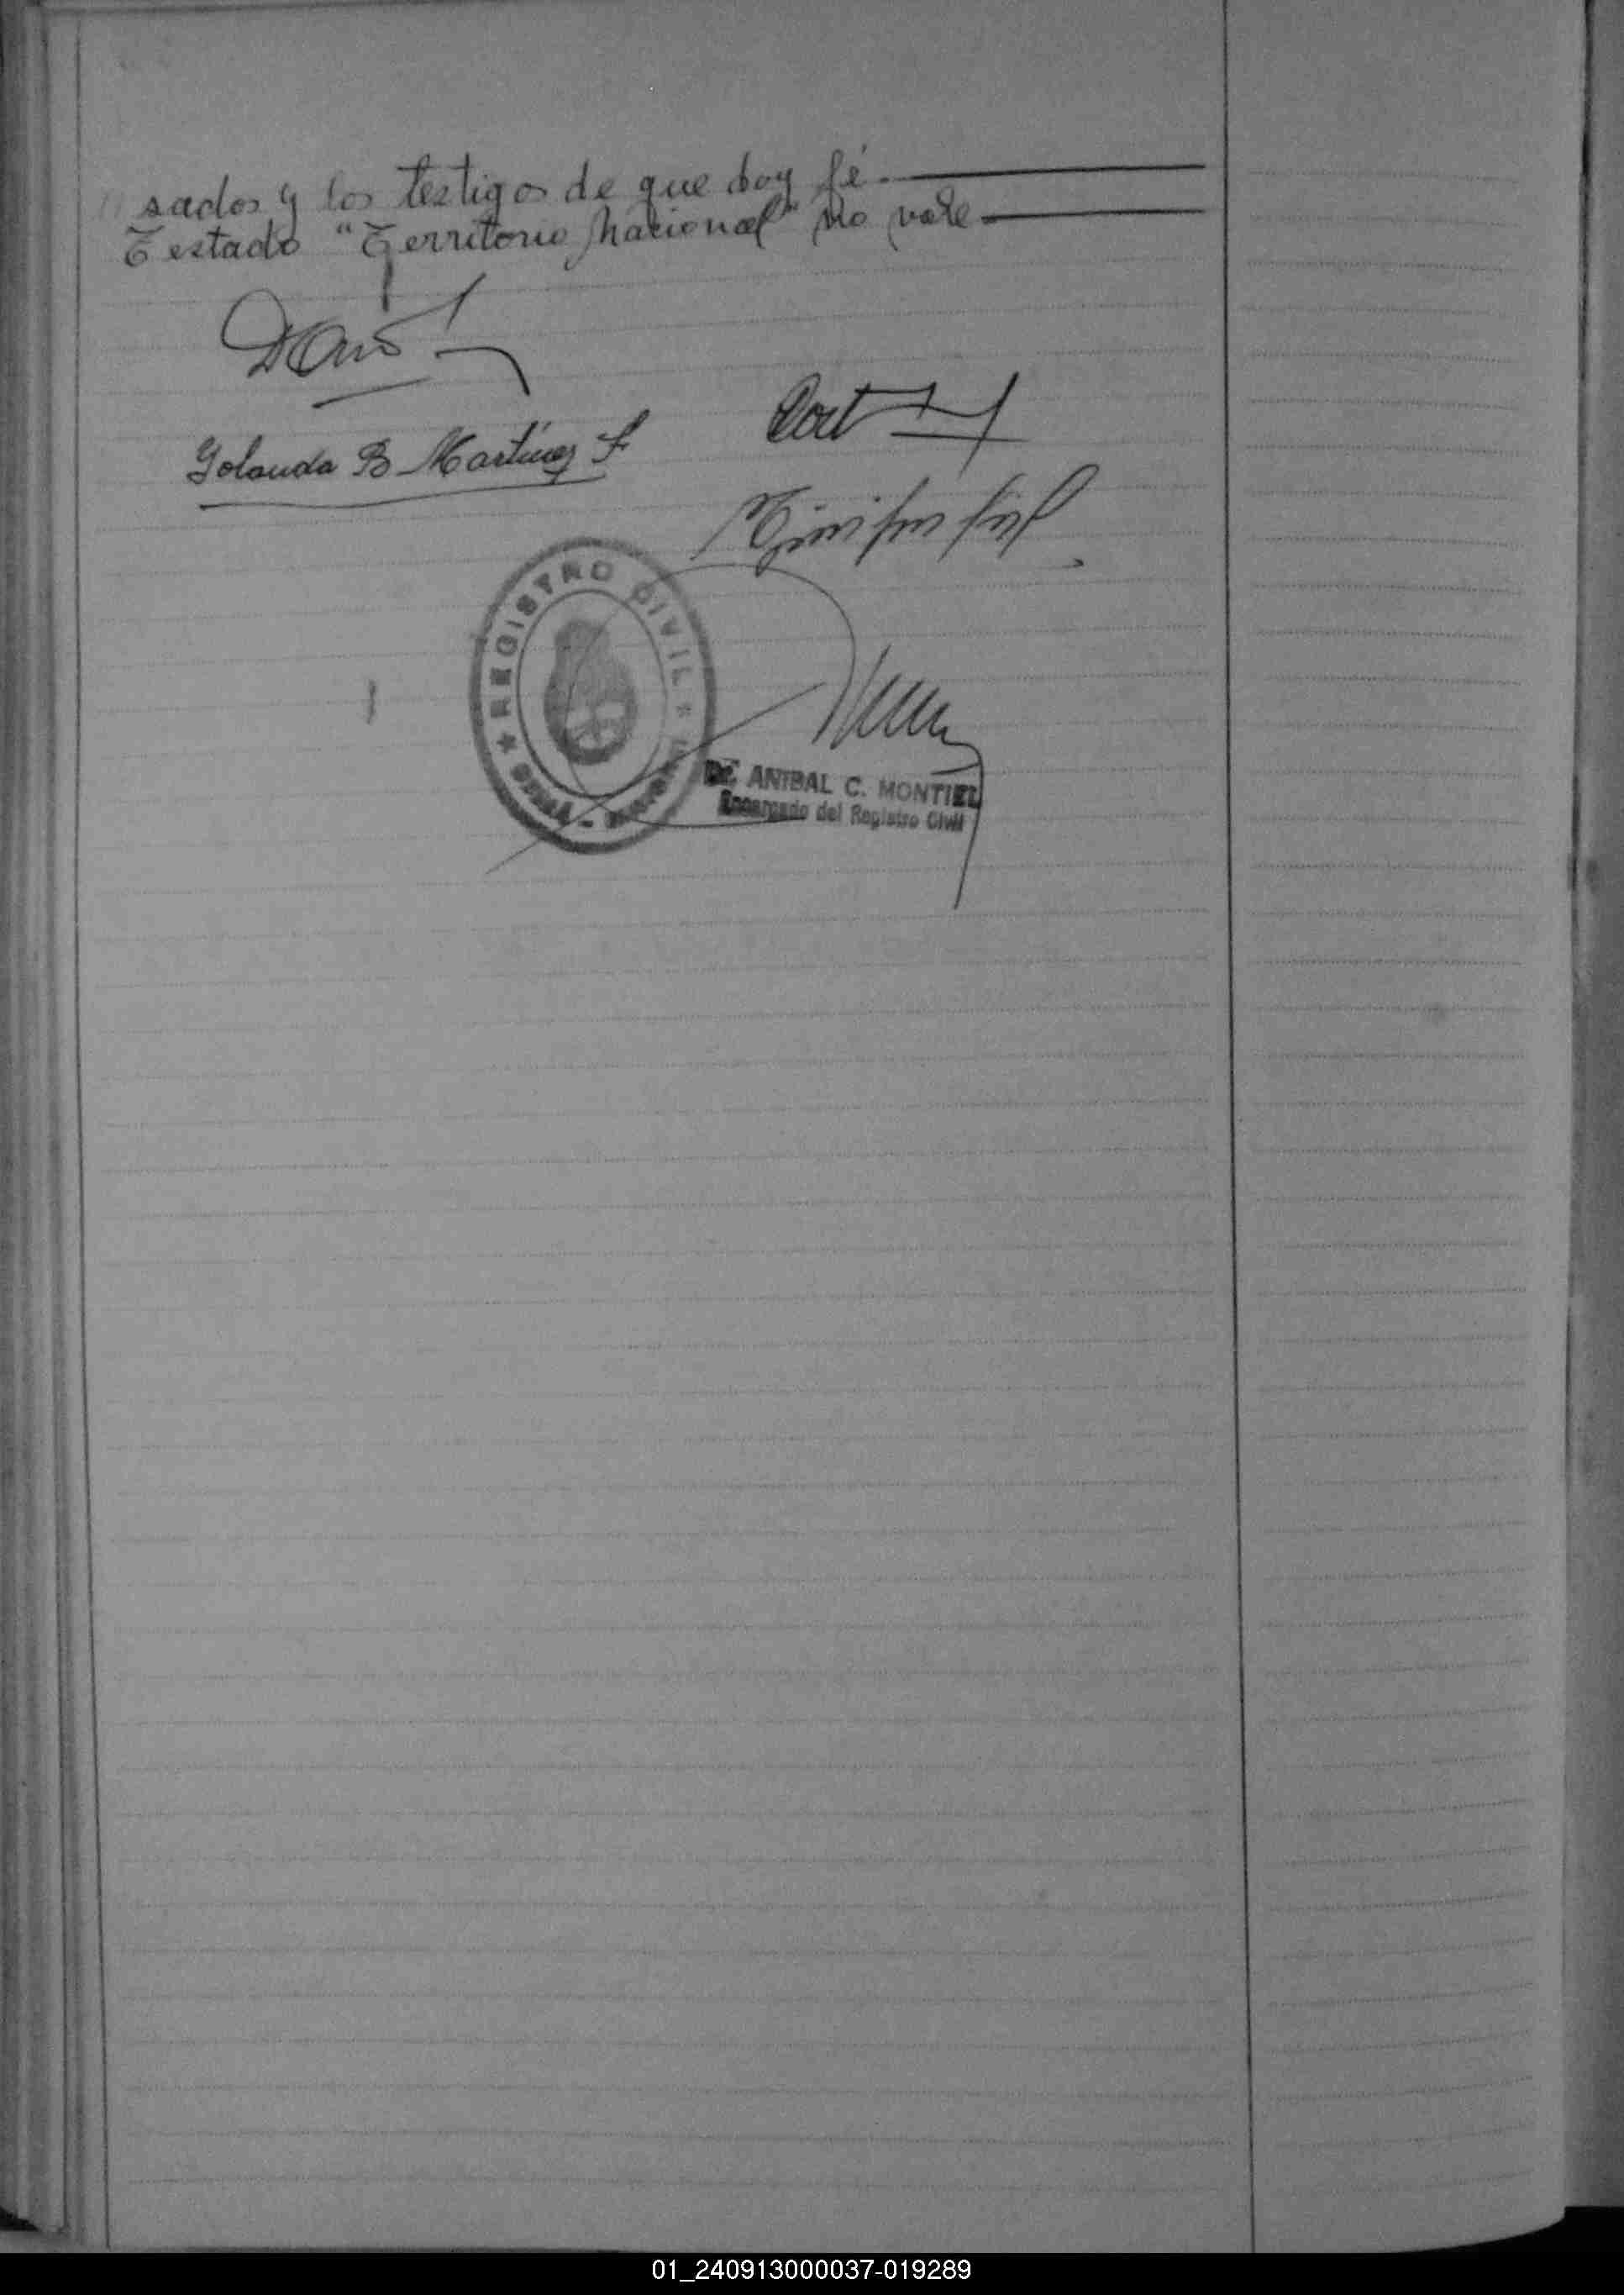 sados y los testigos de que doy fé.
Testado "Territorio Nacional" no vale
Yolanda B Martínez F
REGISTRO CIVIL
Dr. ANIBAL C. MONTIEL
Encargado del Registro Civil
01_240913000037-019289